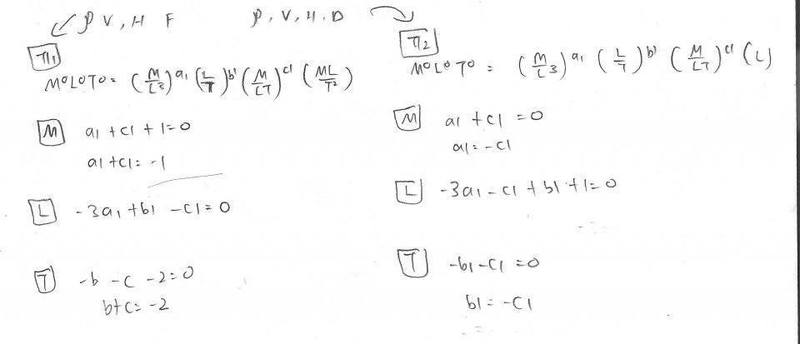 ρ V, H F
ρ, V, H, D
π1
M⁰L⁰T⁰ = (M/L³)^a1 (L/T)^b1 (M/LT)^c1 (ML/T²)
M a1 + c1 + 1 = 0
a1 + c1 = -1
L -3a1 + b1 - c1 = 0
T -b - c - 2 = 0
b + c = -2
π2
M⁰L⁰T⁰ = (M/L³)^a1 (L/T)^b1 (M/LT)^c1 (L)
M a1 + c1 = 0
a1 = -c1
L -3a1 - c1 + b1 + 1 = 0
T -b1 - c1 = 0
b1 = -c1